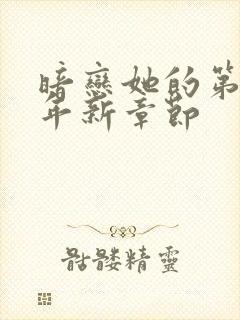 暗戀她的第
年新章節
骷髅精靈